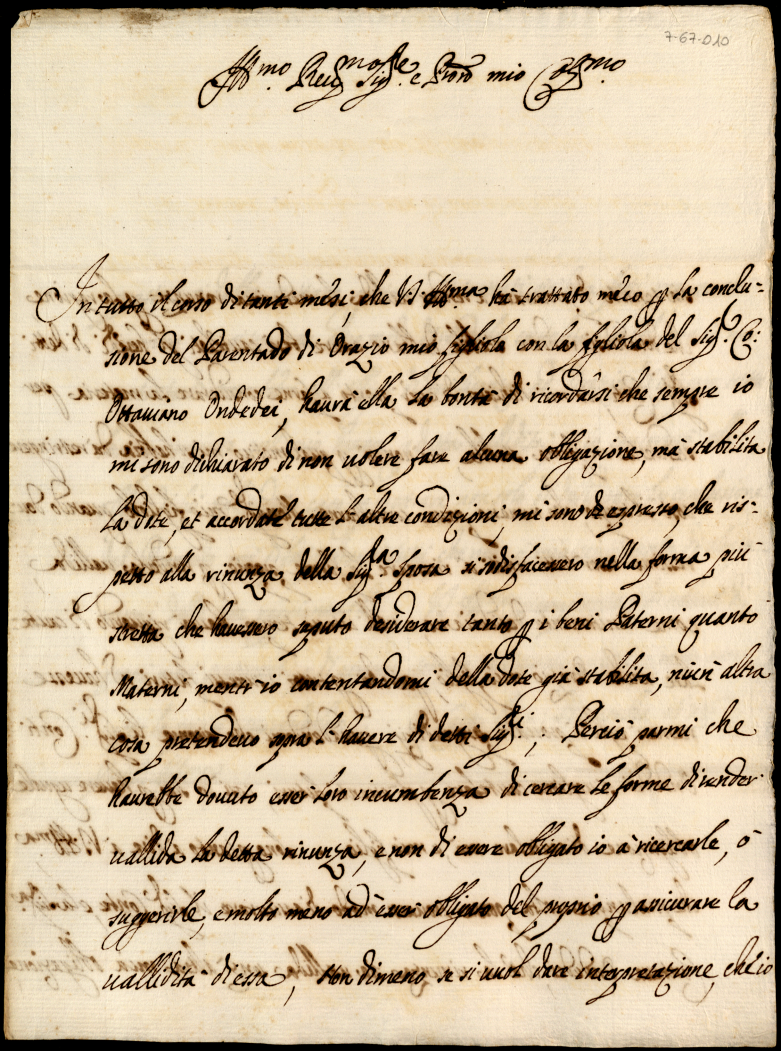 7-67-010
Ill.mo Reu.mo Sig.re e Pron mio Col.mo
In tutto il corso di tanti mesi, che V. Ill.ma hà trattato meco p la conclu=
sione del Parentado di Orazio mio figliolo con la figliola del Sig.r Co:
Ottauiano Ondedei, haurà ella la bontà di ricordarsi che sempre io
mi sono dichiarato di non uolere fare alcuna obligazione, mà stabilita
la dote, et accordate tutte l'altre condizioni, mi sono espresso, che ris=
petto alla rinunza della Sig.ra sposa si sodisfacessero nella forma più
stretta che hauessero saputo desiderare tanto p i beni Paterni quanto
Materni, mentr'io contentandomi della dote già stabilita, niun altra
cosa pretendeuo sopra l'hauere di detti Sig.ri; Perciò parmi che
haurebbe douuto esser loro incumbenza di cercare le forme di render
uallida la detta rinunza, e non di essere obligato io à ricercarle, ò
suggerirle, e molto meno ad esser obligato del proprio p assicurare la
uallidità di essa, Non dimeno se si uuol dare interpretazione, che io